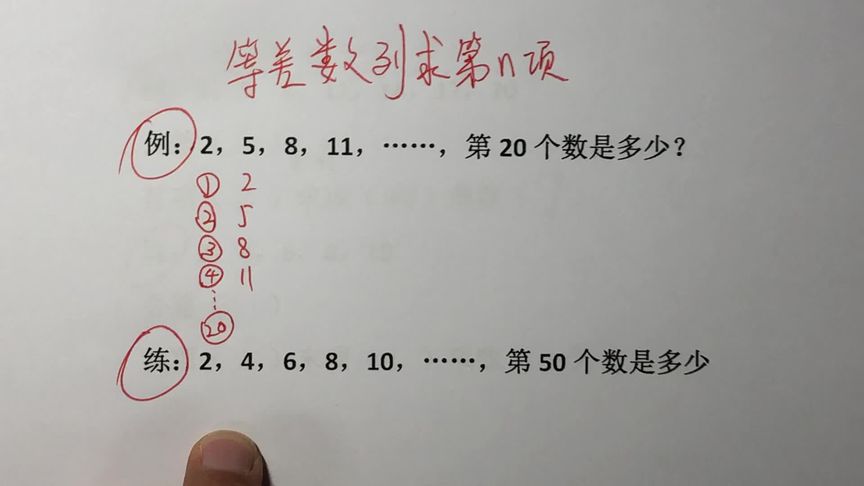 等差数列求第n项
例：2，5，8，11，……，第 20 个数是多少？
① 2
② 5
③ 8
④ 11
⋮
⑳
练：2，4，6，8，10，……，第 50 个数是多少